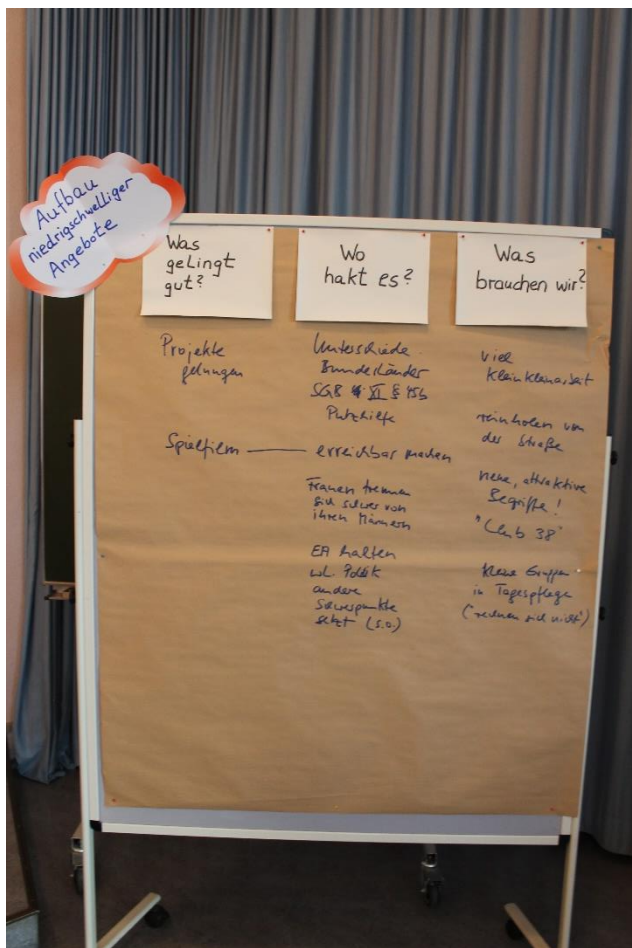 Aufbau
niedrigschwelliger
Angebote
Was
gelingt
gut?
Projekte
gelungen
Spielfilm
Wo
hakt es?
Unterschiede
Bundesländer
SGB XI § 45b
Putzhilfe
erreichbar machen
Frauen trennen
sich schwer von
ihren Männern
EA halten
wl. Politik
andere
Schwerpunkte
setzt (s.o.)
Was
brauchen wir?
viel
Kleinklenarbeit
reinholen von
der Straße
neue, attraktive
Begriffe!
"Club 38"
kleine Gruppen
in Tagespflege
("rechnen sich nicht")